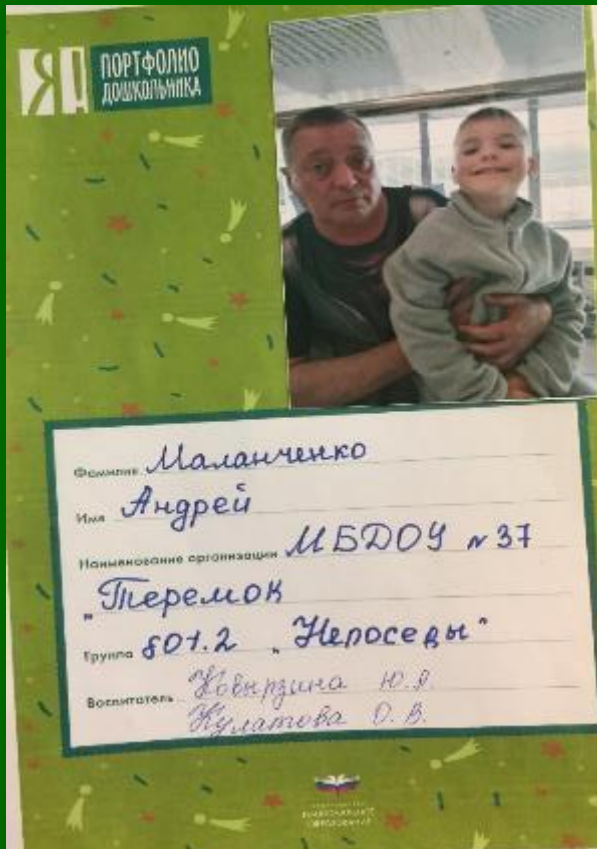 Я!
ПОРТФОЛИО
ДОШКОЛЬНИКА
Фамилия Маланченко
Имя Андрей
Наименование организации МБДОУ № 37
"Теремок
Группа 801.2 "Непоседы"
Воспитатель
Кулатова О. В.